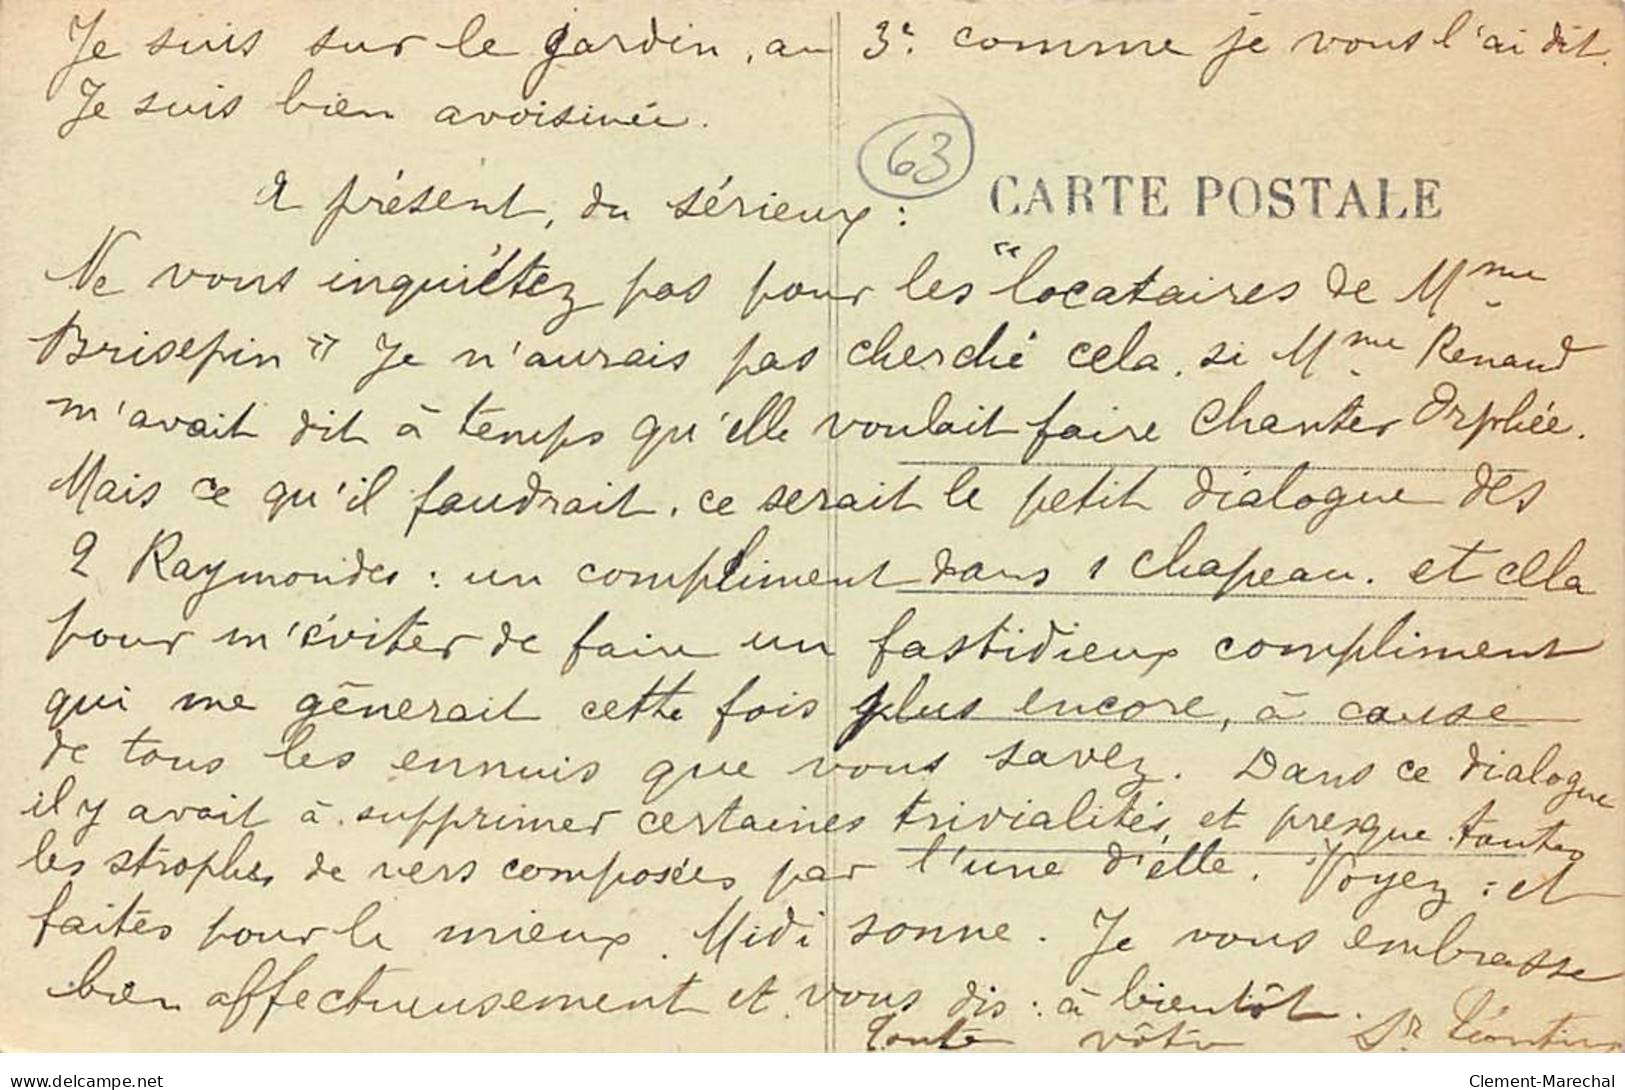 Je suis sur le jardin, au 3e. comme je vous l'ai dit.
Je suis bien avoisinée.
63
CARTE POSTALE
A présent, du sérieux :
Ne vous inquiétez pas pour les "locataires de Mme
Brisepin" Je n'aurais pas cherché cela, si Mme Renaud
m'avait dit à temps qu'elle voulait faire chanter Orphée.
Mais ce qu'il faudrait, ce serait le petit dialogue des
2 Raymondes : un compliment dans 1 chapeau. et cela
pour m'éviter de faire un fastidieux compliment
qui me gênerait cette fois plus encore, à cause
de tous les ennuis que vous savez. Dans ce dialogue
il y avait à supprimer certaines trivialités, et presque toutes
les strophes de vers composées par l'une d'elle. Voyez : et
faites pour le mieux. Midi sonne. Je vous embrasse
bien affectueusement et vous dis : à bientôt.
Toute vôtre Sr Léontine
Clement-Marechal